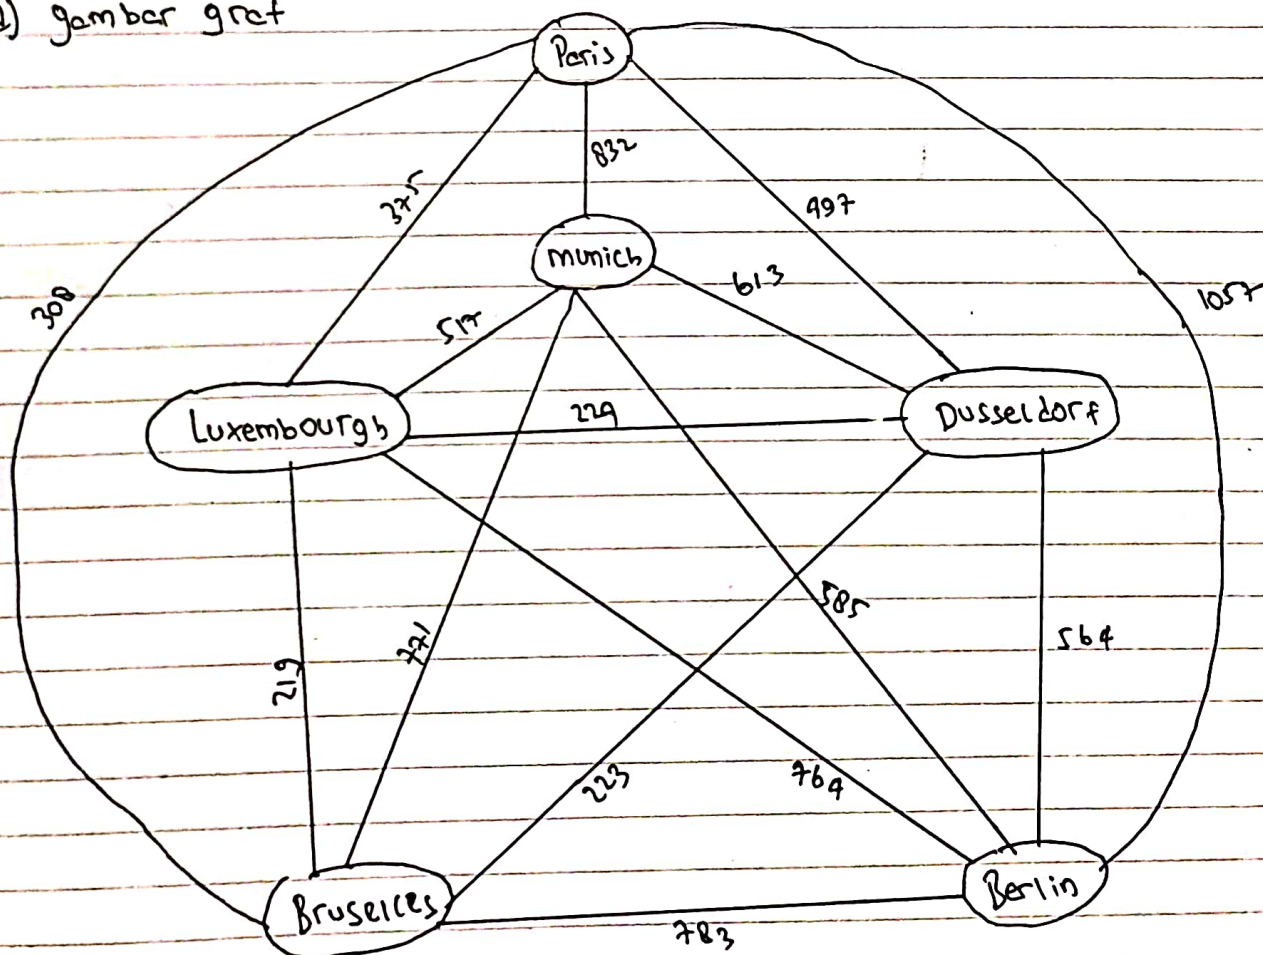 a) gambar graf
Paris
832
375
497
munich
613
308
1057
517
Luxembourgh
229
Dusseldorf
585
564
219
771
223
764
Bruselles
Berlin
783